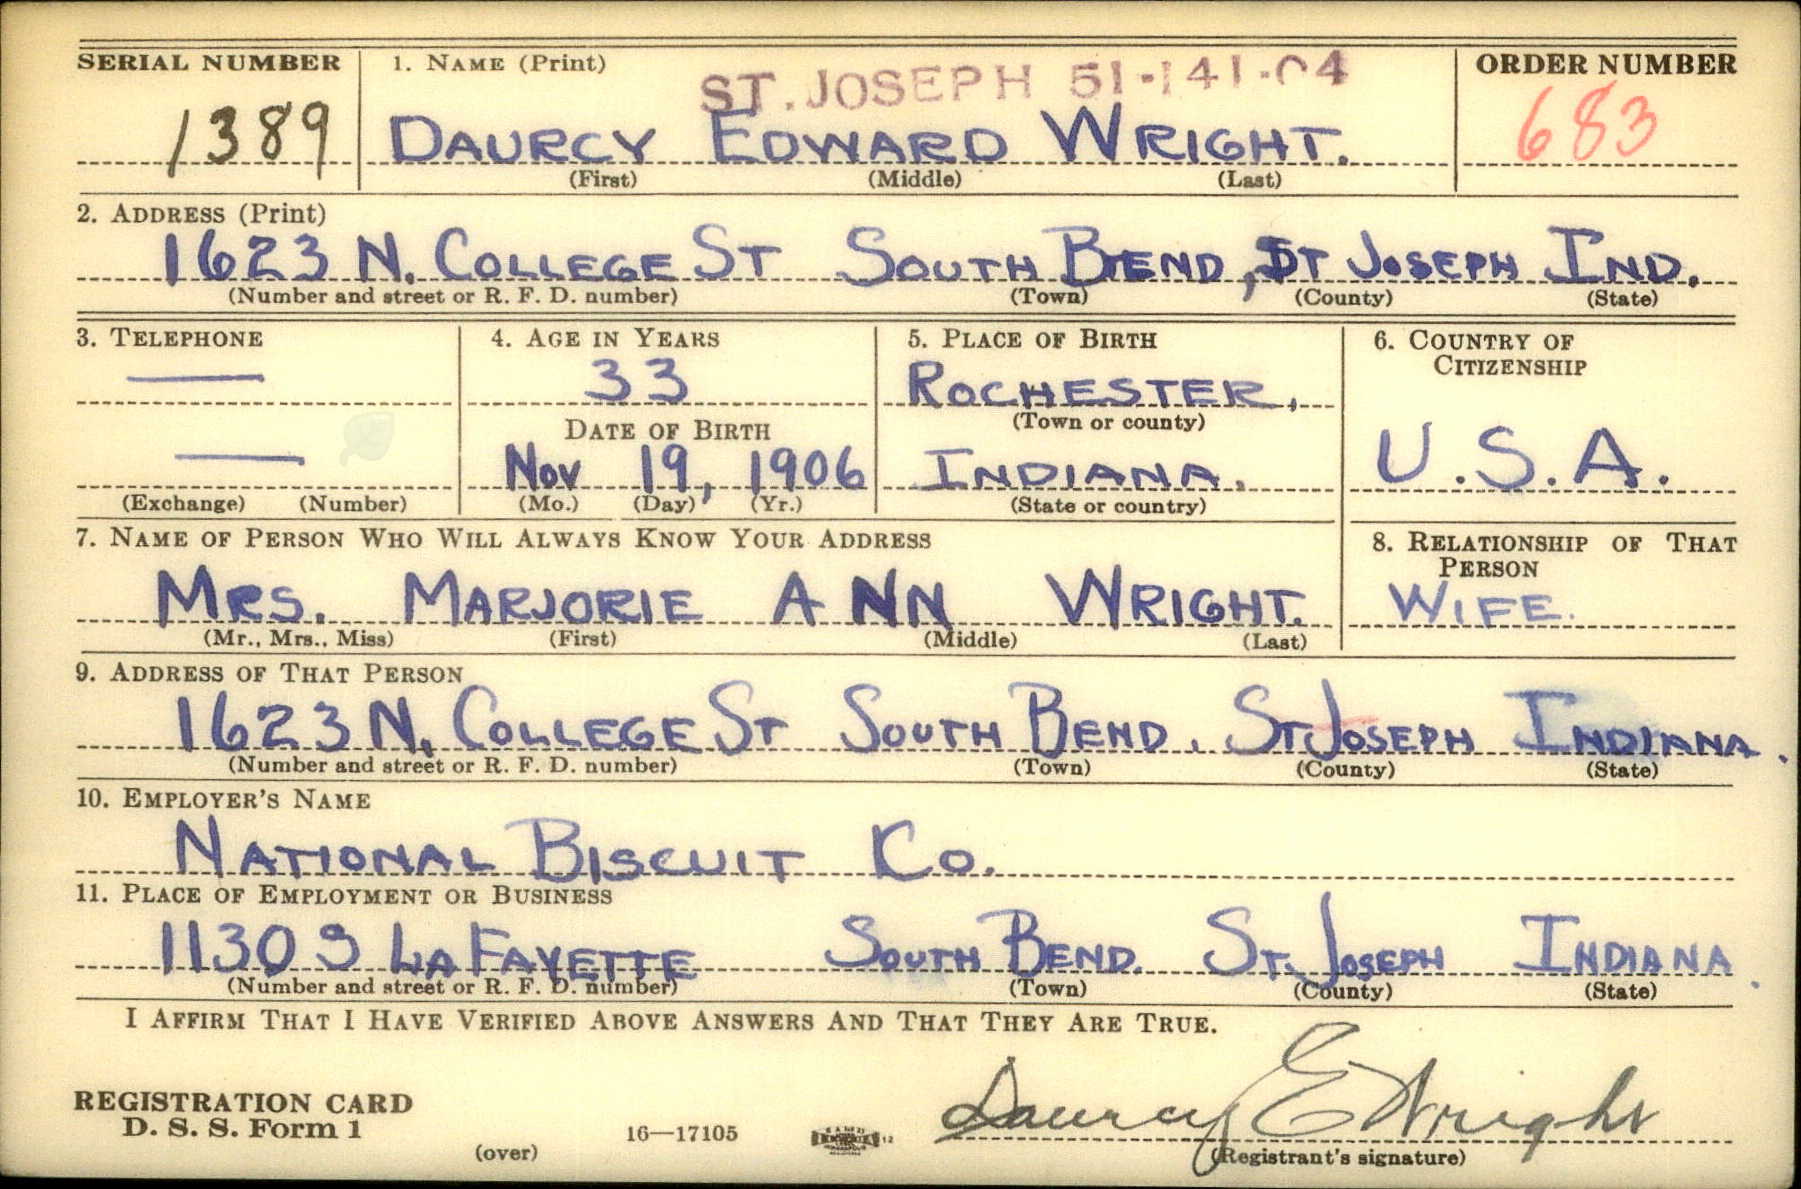 SERIAL NUMBER 1. NAME (Print) ST. JOSEPH 51-141-04 ORDER NUMBER
1389 DAURCY EDWARD WRIGHT. 683
(First) (Middle) (Last)
2. ADDRESS (Print)
1623 N. COLLEGE ST SOUTH BEND, ST JOSEPH IND.
(Number and street or R. F. D. number) (Town) (County) (State)
3. TELEPHONE 4. AGE IN YEARS 5. PLACE OF BIRTH 6. COUNTRY OF
CITIZENSHIP
— 33 ROCHESTER,
DATE OF BIRTH (Town or county)
— Nov 19, 1906 INDIANA. U.S.A.
(Exchange) (Number) (Mo.) (Day) (Yr.) (State or country)
7. NAME OF PERSON WHO WILL ALWAYS KNOW YOUR ADDRESS 8. RELATIONSHIP OF THAT
PERSON
MRS. MARJORIE ANN WRIGHT. WIFE.
(Mr., Mrs., Miss) (First) (Middle) (Last)
9. ADDRESS OF THAT PERSON
1623 N. COLLEGE ST SOUTH BEND. ST JOSEPH INDIANA.
(Number and street or R. F. D. number) (Town) (County) (State)
10. EMPLOYER'S NAME
NATIONAL BISCUIT CO.
11. PLACE OF EMPLOYMENT OR BUSINESS
1130 S LAFAYETTE SOUTH BEND. ST. JOSEPH INDIANA.
(Number and street or R. F. D. number) (Town) (County) (State)
I AFFIRM THAT I HAVE VERIFIED ABOVE ANSWERS AND THAT THEY ARE TRUE.
REGISTRATION CARD
D. S. S. Form 1 16—17105 12 Daurcy E Wright
(over) (Registrant's signature)